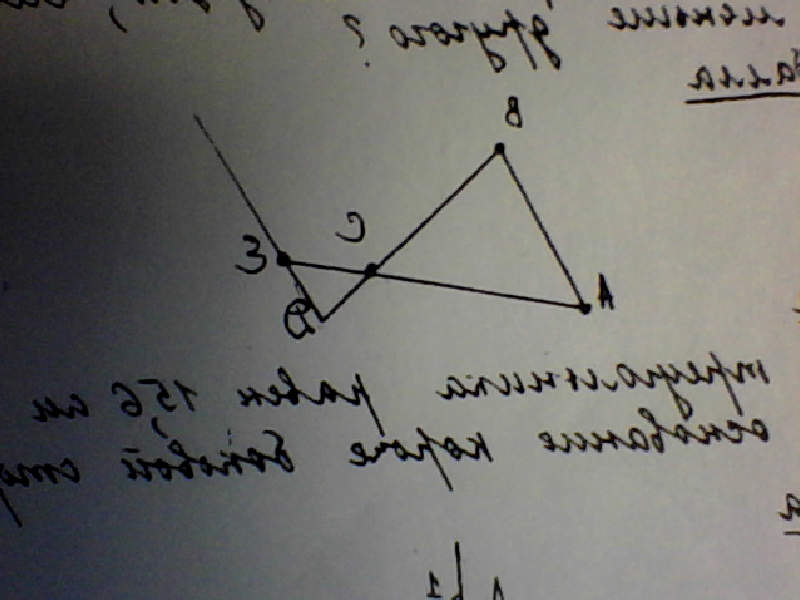 меньше другого?
балла
B
C
E
D
A
треугольника равен 15,6 см
основание короче боковой стор